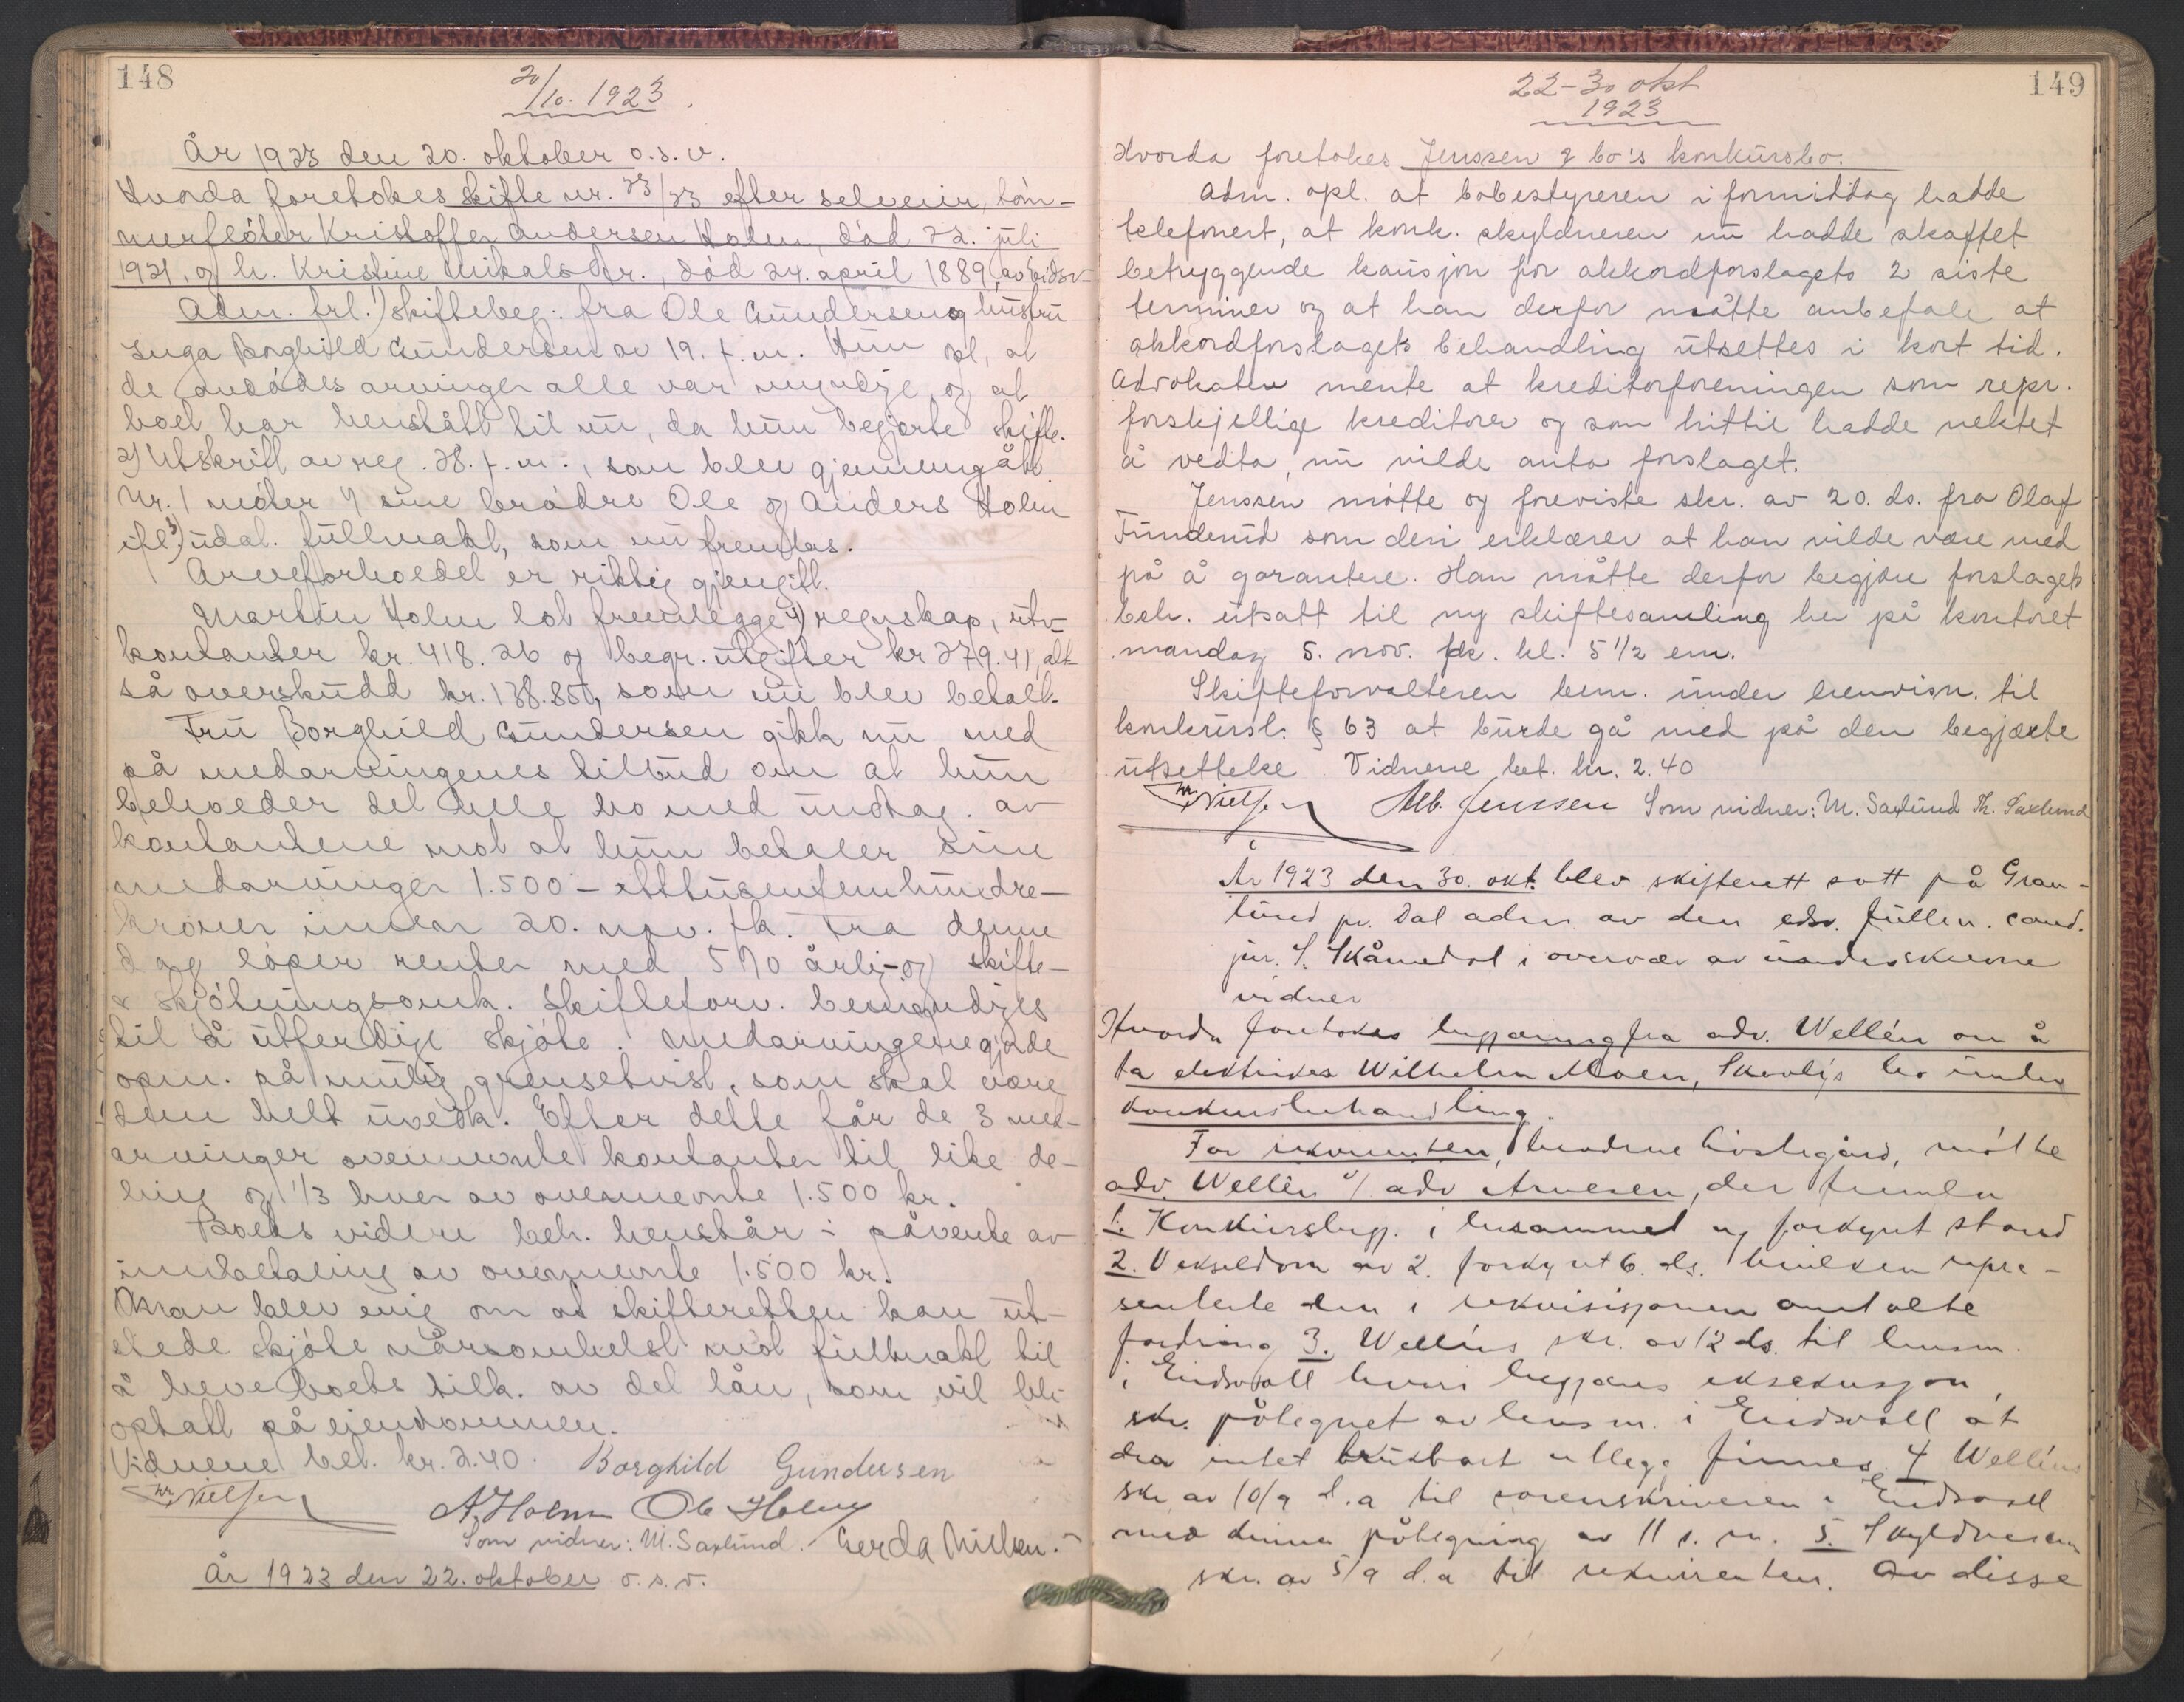 148
20/10. 1923.
År 1923 den 20. oktober o.s.v.
Hvorda foretokes skifte nr. 23/23 efter selveier, tøm-
merfløter Kristoffer Andersen Holm, død 22. juli
1921, og h. Kristine Mikalsdtr., død 24. april 1889, av Eidsv-
Adm. frl. 1) skiftebeg. fra Ole Gundersen og hustru
Inga Borghild Gundersen av 19. f.m. Hun opl, at
de avdødes arvinger alle var myndige og at
boet har henstått til nu, da hun begjærte skifte.
2) Utskrift av reg. 28. f.m., som blev gjennemgått.
Nr. 1 møter f sine brødre Ole og Anders Holm
ifl. 3) udat. fullmakt, som nu fremlas.
Arveforholdet er riktig gjengitt.
Martin Holm lot fremlegge 4) regnskap, utv.
kontanter kr. 418.26 og begr. utgifter kr 279.41, alt-
så overskudd kr. 138.85, som nu blev betalt.
Fru Borghild Gundersen gikk nu med
på medarvingenes tilbud om at hun
beholder det hele bo med undtag. av
kontantene mot at hun betaler sine
medarvinger 1.500 – ettusenfemhundre –
kroner innen 20. nov. fk. Fra denne
dag løper renter med 5 % årlig og skifte-
& skjøtningsomk. Skifteforv. bemyndiges
til å utferdige skjøte. Medarvingene gjorde
opm. på mulig grensetvist, som skal være
dem helt uvedk. Efter dette får de 3 med-
arvinger ovennevnte kontanter til like de-
ling og 1/3 hver av ovennevnte 1.500 kr.
Boets videre beh. henstår i påvente av
innbetaling av ovennevnte 1.500 kr.
Man blev enig om at skifteretten kan ut-
stede skjøte nårsomhelst mot fullmakt til
å heve boets tilk. av det lån, som vil bli
optatt på eiendommen.
Vidnene bet. kr. 2.40. Borghild Gundersen
Nielsen
A. Holm Ole Holm
Som vidner: M. Saxlund. Gerda Nielsen.
År 1923 den 22. oktober o.s.v.
149
22–30 okt
1923
Hvorda foretokes Jenssen & co's konkursbo.
Adm. opl. at bobestyreren i formiddag hadde
telefonert, at konk. skyldneren nu hadde skaffet
betryggende kausjon for akkordforslagets 2 siste
terminer og at han derfor måtte anbefale at
akkordforslagets behandling utsettes i kort tid.
Advokaten mente at kreditorforeningen som repr.
forskjellige kreditorer og som hittil hadde nektet
å vedta, nu vilde anta forslaget.
Jenssen møtte og foreviste skr. av 20. ds. fra Olaf
Funderud som deri erklærer at han vilde være med
på å garantere. Han måtte derfor begjære forslagets
beh. utsatt til ny skiftesamling her på kontoret
mandag 5. nov. fk. kl. 5 1/2 em.
Skifteforvalteren bem. under henvisn. til
konkursl. § 63 at burde gå med på den begjærte
utsettelse Vidnene bet. kr. 2.40
Nielsen Alb. Jenssen Som vidner: M. Saxlund Th. Saxlund
År 1923 den 30. okt. blev skifterett satt på Gran-
lund pr. Dal adm av den edsv. fullm. cand.
jur. S. Skåmedal i overvær av underskrevne
vidner
Hvorda foretokes begjæring fra adv. Wellén om å
ta elektriker Wilhelm Moen, Skovly's bo under
konkursbehandling.
For rekvirenten, brødrene Lostegård, møtte
adv. Wellén v/ adv Arnesen, der fremla
1. Konkursbegj. i besammet og forkynt stand
2. Vekseldom av 2. forkynt 6. ds. hvilken repre-
senterte den i rekvisisjonen omtalte
fordring 3. Welléns skr. av 12 ds. til lensm.
i Eidsvoll hvori begjæres eksekusjon,
skr. påtegnet av lensm. i Eidsvoll at
der intet brukbart utlegg finnes 4 Welléns
skr av 10/9 d.a til sorenskriveren i Eidsvoll
med dennes påtegning av 11 s. m. 5. Skyldneren
skr. av 5/9 d.a til rekvirenten. Av disse